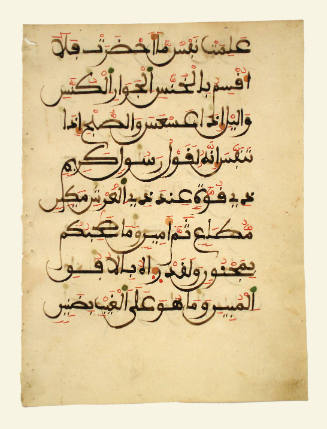 علمت نفس ما احضرت فلا
اقسم بالخنس الجوار الكنس
واليل اذا عسعس والصبح اذا
تنفس انه لقول رسول كريم
ذي قوة عند ذي العرش مكين
مطاع ثم امين وما صحبكم
بمجنون ولقد راه بالافق
المبين وما هو على الغيب بضنين